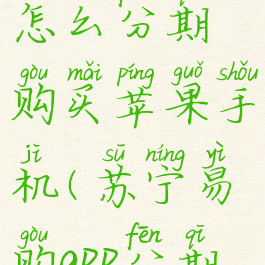 怎么分期
gòu mǎi píng guǒ shǒu
购买苹果手
jī sū níng yì
机(苏宁易
gòu fēn qī
购app分期